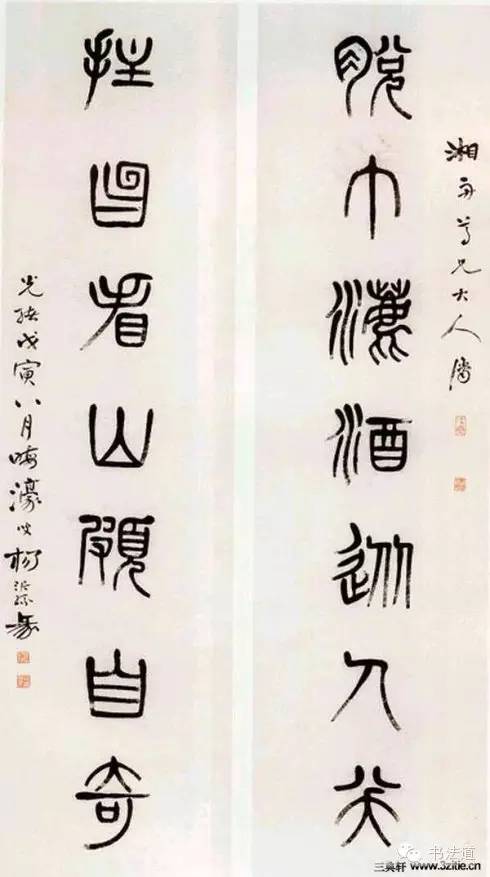 湘舟尊兄大人屬
脱巾漉酒從人笑
拄笏看山頗自奇
光緒戊寅八月晦濠叟楊沂孫篆
书法道
三典轩 www.3zitie.cn